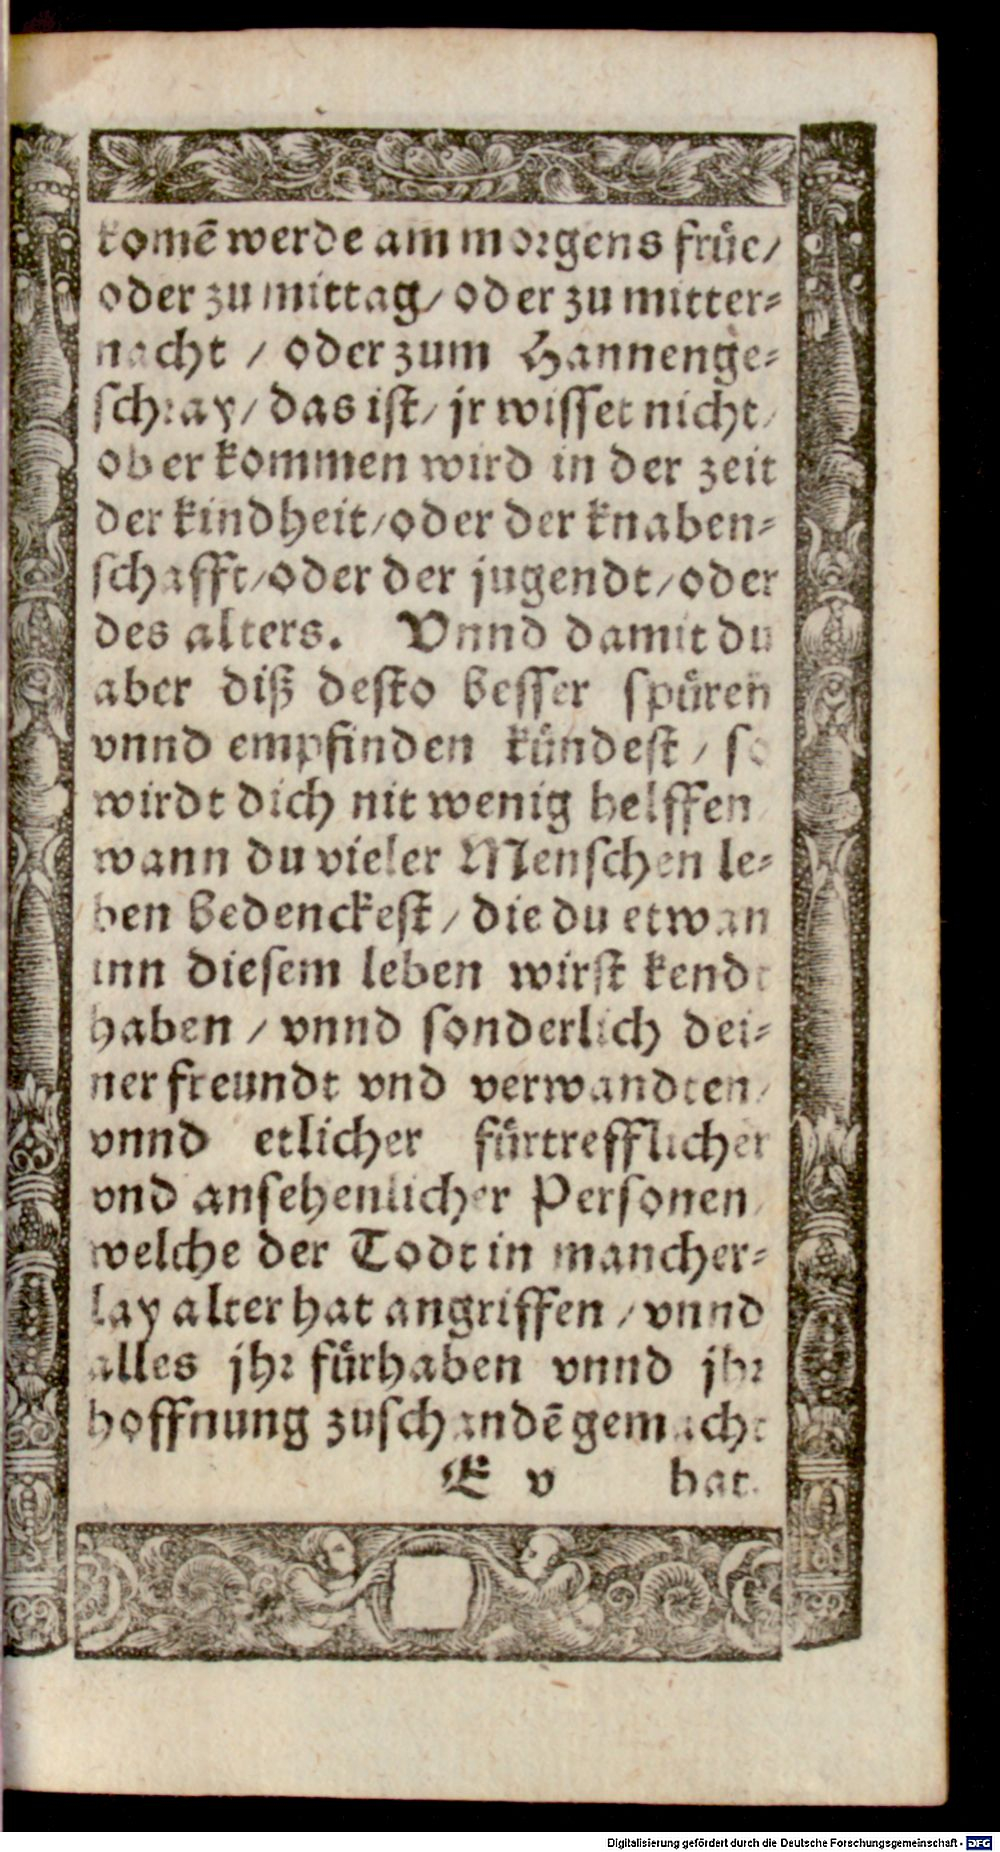 komē werde am morgens früe/
oder zu mittag/ oder zu mitter⸗
nacht / oder zum Hannenge⸗
schray/ das ist/ jr wisset nicht/
ob er kommen wird in der zeit
der kindheit/oder der knaben⸗
schafft/oder der jugendt/oder
des alters. Vnnd damit du
aber diß desto besser spüren
vnnd empfinden kündest / so
wirdt dich nit wenig helffen
wann du vieler Menschen le⸗
ben bedenckest / die du etwan
inn diesem leben wirst kendt
haben / vnnd sonderlich dei⸗
ner freundt vnd verwandten/
vnnd etlicher fürtrefflicher
vnd ansehenlicher Personen/
welche der Todt in mancher⸗
lay alter hat angriffen / vnnd
alles jhr fürhaben vnnd jhr
hoffnung zuschandē gemacht
E v hat.
Digitalisierung gefördert durch die Deutsche Forschungsgemeinschaft - DFG